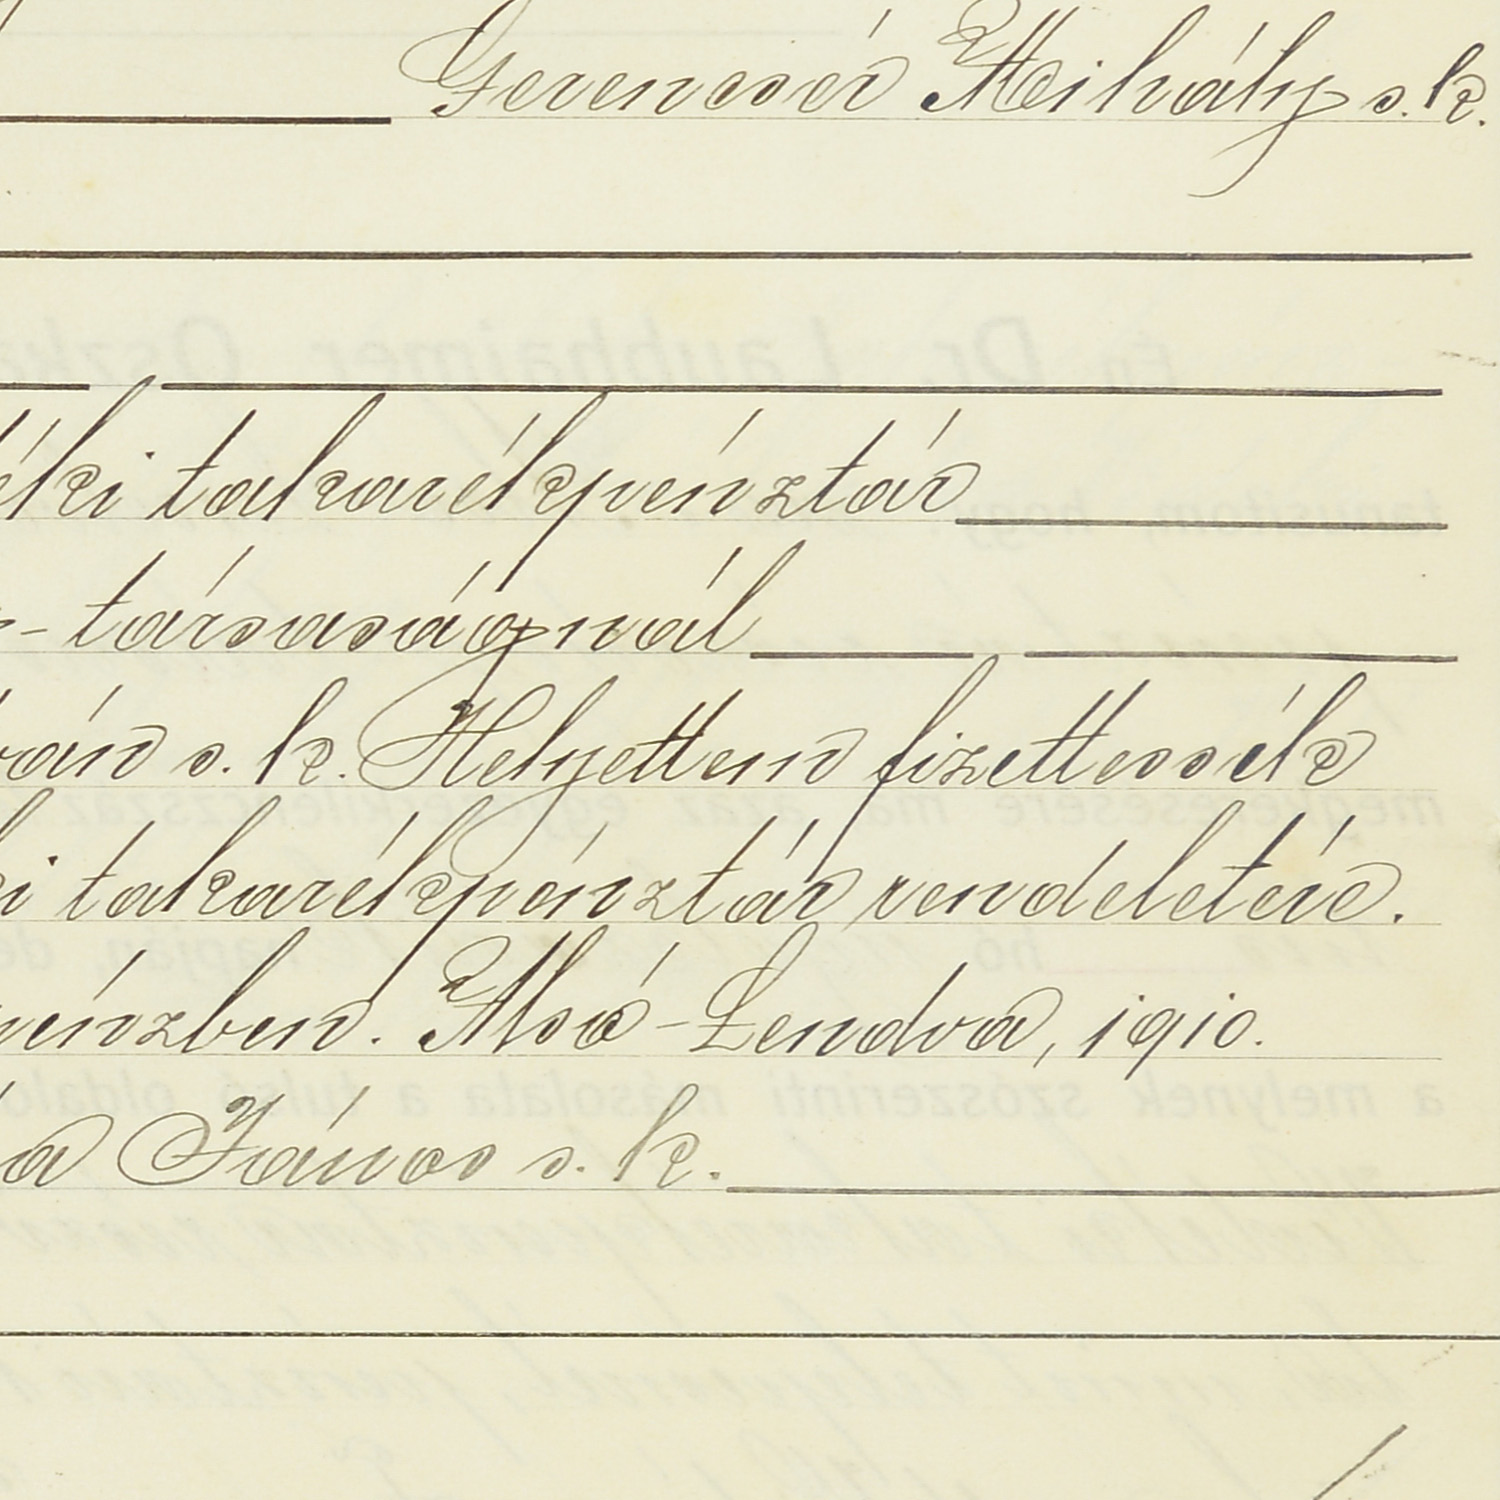 Gerencsér Mihály s.k.
éki takarékpénztár
-társaságnál
ván s. k. Helyettem fizettessék
ki takarékpénztár rendeletére.
pénzben. Alsó-Lendva, 1910.
a János s. k.